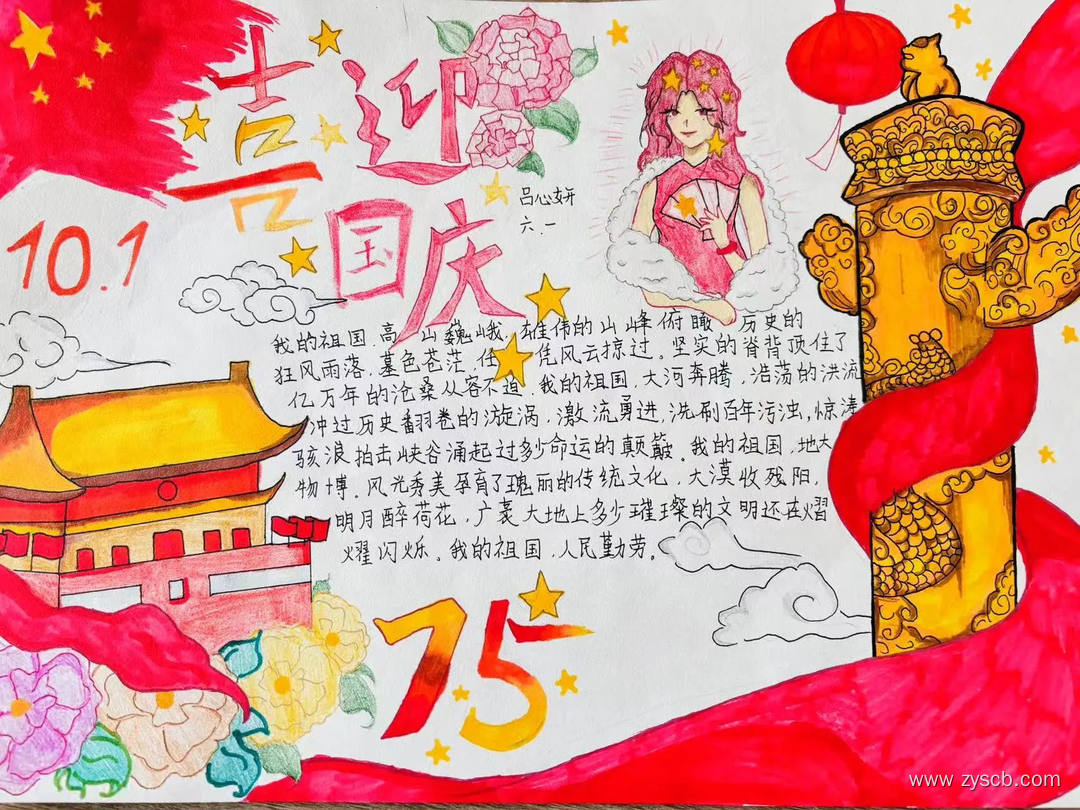 喜迎
国庆
吕心妍
六.一
10.1
我的祖国.高山巍峨.雄伟的山峰俯瞰历史的
狂风雨落.墓色苍茫任凭风云掠过.坚实的脊背顶住了
亿万年的沧桑从容不迫.我的祖国.大河奔腾,浩荡的洪流
冲过历史翻卷的漩涡,激流勇进,洗刷百年污浊,惊涛
骇浪拍击峡谷涌起过多少命运的颠簸。我的祖国,地大
物博。风光秀美孕育了瑰丽的传统文化,大漠收残阳,
明月醉荷花,广袤大地上多少璀璨的文明还在熠
耀闪烁。我的祖国,人民勤劳。
75
www.zyscb.com